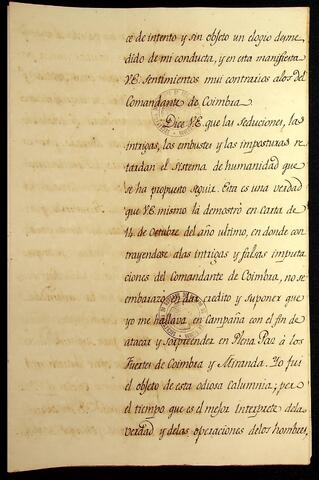 ce de intento y sin objeto un elogio desme
dido de mi conducta, y en esta manifiesta
VE. sentimientos mui contrarios alos del
Comandante de Coimbra.
Dice VE. que las seduciones, las
intrigas, los embustes y las imposturas re
tardan el sistema de humanidad que
se ha propuesto seguir. Esta es una verdad
que VE. mismo la demostrò en Carta de
14 de Octubre del año ultimo, en donde con
trayendose alas intrigas y falsas imputa
ciones del Comandante de Coimbra, no se
embarazò en dar credito y suponer que
yo me hallava en Campaña con el fin de
atacar y sorprender en Plena Paz à los
Fuertes de Coimbra y Miranda. Yo fui
el objeto de esta odiosa Calumnia; pero
el tiempo que es el mejor Interprete dela
verdad y delas operaciones delos hombres,